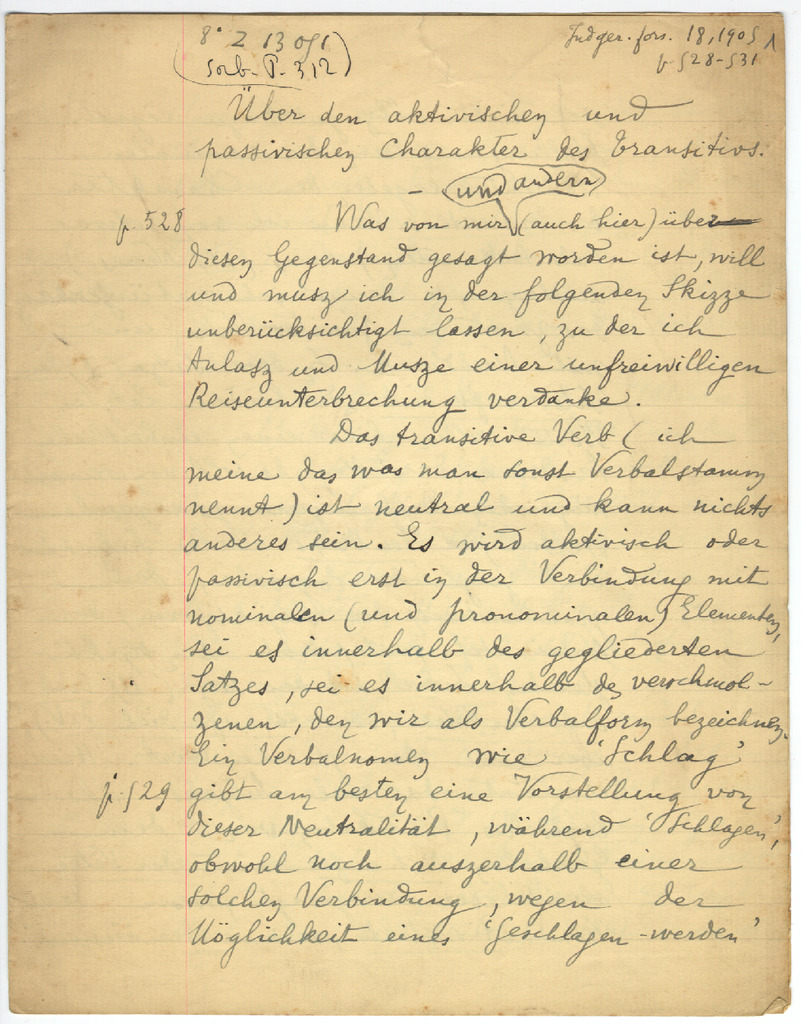 8° Z 13 051
(Sorb. P. 312)
Indger. fors. 18, 1905
p 528-531
1
Über den aktivischen und
passivischen Charakter des Transitivs.
– und andern
p. 528
Was von mir (auch hier) über
diesen Gegenstand gesagt worden ist, will
und musz ich in der folgenden Skizze
unberücksichtigt lassen, zu der ich
Anlasz und Musze einer unfreiwilligen
Reiseunterbrechung verdanke.
Das transitive Verb (ich
meine das was man sonst Verbalstamm
nennt) ist neutral und kann nichts
anderes sein. Es wird aktivisch oder
passivisch erst in der Verbindung mit
nominalen (und pronominalen) Elementen,
sei es innerhalb des gegliederten
Satzes, sei es innerhalb des verschmol-
zenen, den wir als Verbalform bezeichnen.
Ein Verbalnomen wie 'Schlag'
p. 529
gibt am besten eine Vorstellung von
dieser Neutralität, während 'Schlagen',
obwohl noch auszerhalb einer
solchen Verbindung, wegen der
Möglichkeit eines 'Geschlagen-werden'